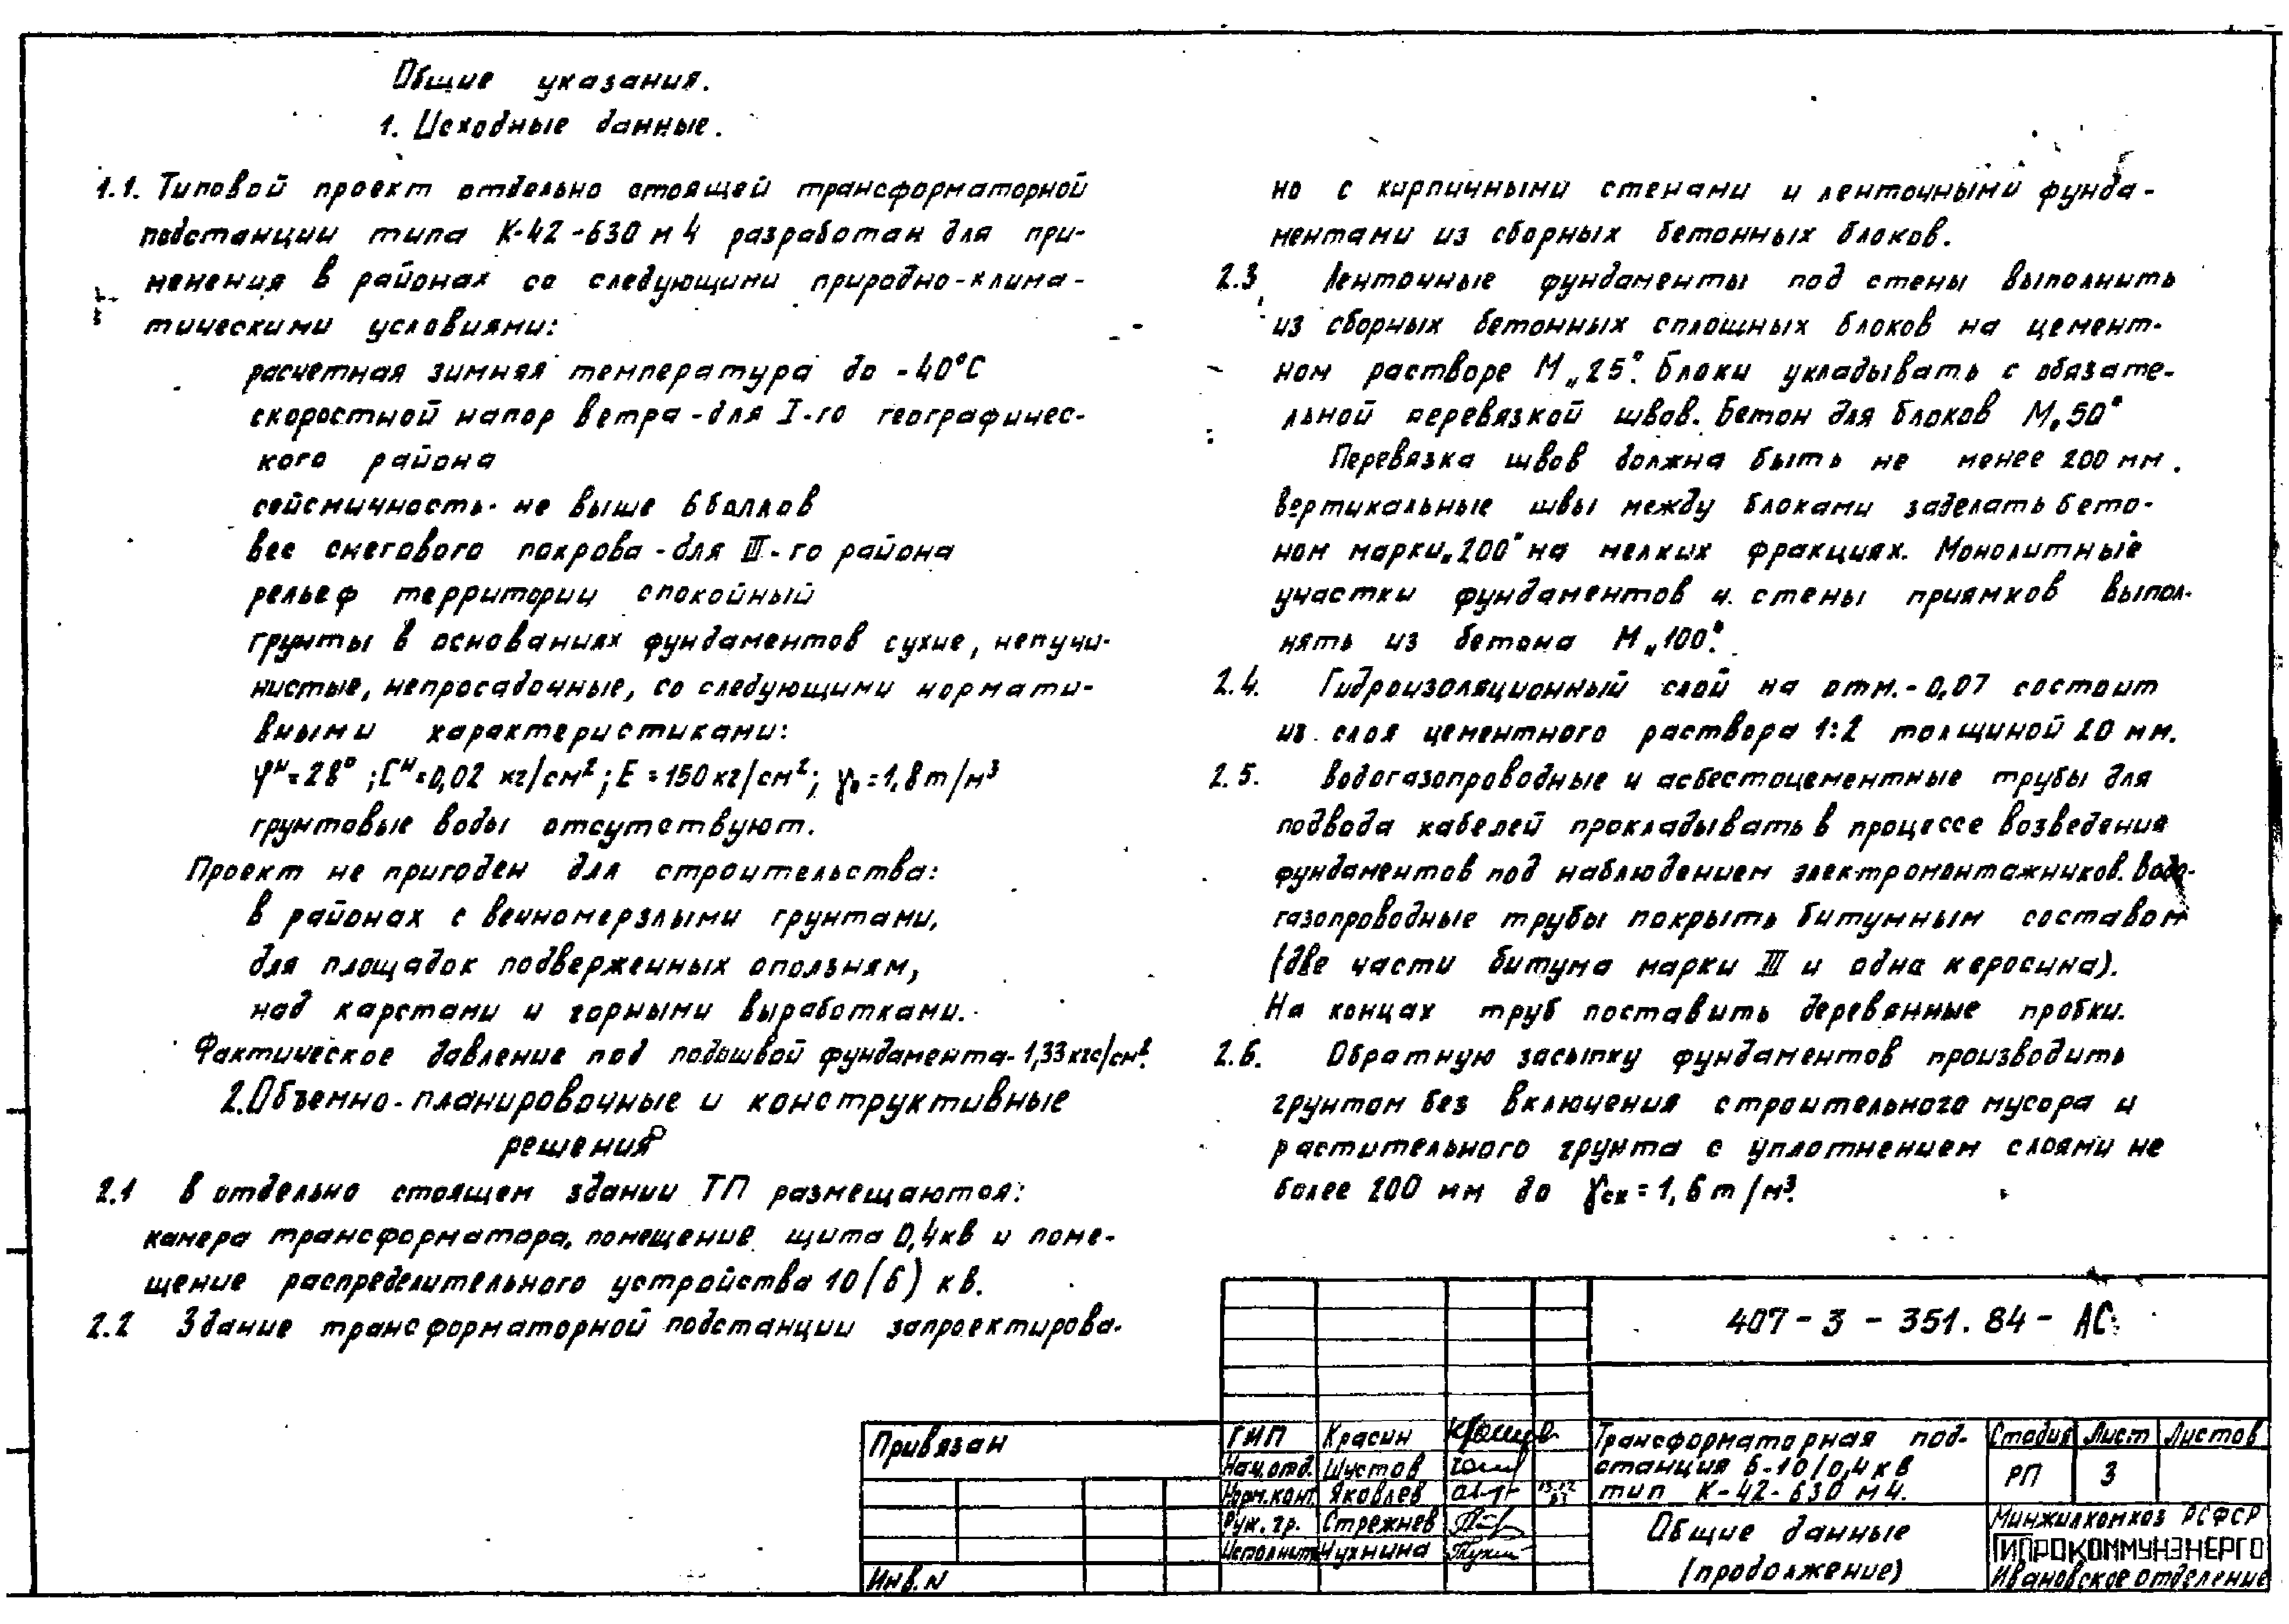 Общие указания.
1. Исходные данные.
1.1. Типовой проект отдельно стоящей трансформаторной
подстанции типа К-42-630 м 4 разработан для при-
менения в районах со следующими природно-клима-
тическими условиями:
расчетная зимняя температура до -40°С
скоростной напор ветра - для I-го географичес-
кого района
сейсмичность - не выше 6 баллов
вес снегового покрова - для III-го района
рельеф территории спокойный
грунты в основаниях фундаментов сухие, непучи-
нистые, непросадочные, со следующими нормати-
вными характеристиками:
φᴴ=28° ; Cᴴ=0,02 кг/см²; E=150 кг/см²; γ₀=1,8 т/м³
грунтовые воды отсутствуют.
Проект не пригоден для строительства:
в районах с вечномерзлыми грунтами,
для площадок подверженных оползням,
над карстами и горными выработками.
Фактическое давление под подошвой фундамента - 1,33 кгс/см².
2. Объемно-планировочные и конструктивные
решения
2.1 В отдельно стоящем здании ТП размещаются:
камера трансформатора, помещение щита 0,4 кв и поме-
щение распределительного устройства 10(6) кв.
2.2 Здание трансформаторной подстанции запроектирова-
но с кирпичными стенами и ленточными фунда-
ментами из сборных бетонных блоков.
2.3 Ленточные фундаменты под стены выполнить
из сборных бетонных сплошных блоков на цемент-
ном растворе М„25". Блоки укладывать с обязате-
льной перевязкой швов. Бетон для блоков М„50"
Перевязка швов должна быть не менее 200 мм.
Вертикальные швы между блоками заделать бето-
ном марки „200" на мелких фракциях. Монолитные
участки фундаментов и стены приямков выпол-
нять из бетона М„100".
2.4. Гидроизоляционный слой на отм. -0,07 состоит
из слоя цементного раствора 1:2 толщиной 20 мм.
2.5. Водогазопроводные и асбестоцементные трубы для
подвода кабелей прокладывать в процессе возведения
фундаментов под наблюдением электромонтажников. Водо-
газопроводные трубы покрыть битумным составом
(две части битума марки III и одна керосина).
На концах труб поставить деревянные пробки.
2.6. Обратную засыпку фундаментов производить
грунтом без включения строительного мусора и
растительного грунта с уплотнением слоями не
более 200 мм до γск = 1,6 т/м³.
407-3-351.84-АС
Привязан
Инв. N
ГИП Красин
Нач. отд. Шустов
Норм. конт. Яковлев
Рук. гр. Стрежнев
Исполнит. Чухнина
Трансформаторная под-
станция 6-10/0,4 кв
тип К-42-630 м 4.
Стадия Лист Листов
РП 3
Общие данные
(продолжение)
Минжилкомхоз РСФСР
ГИПРОКОММУНЭНЕРГО
Ивановское отделение